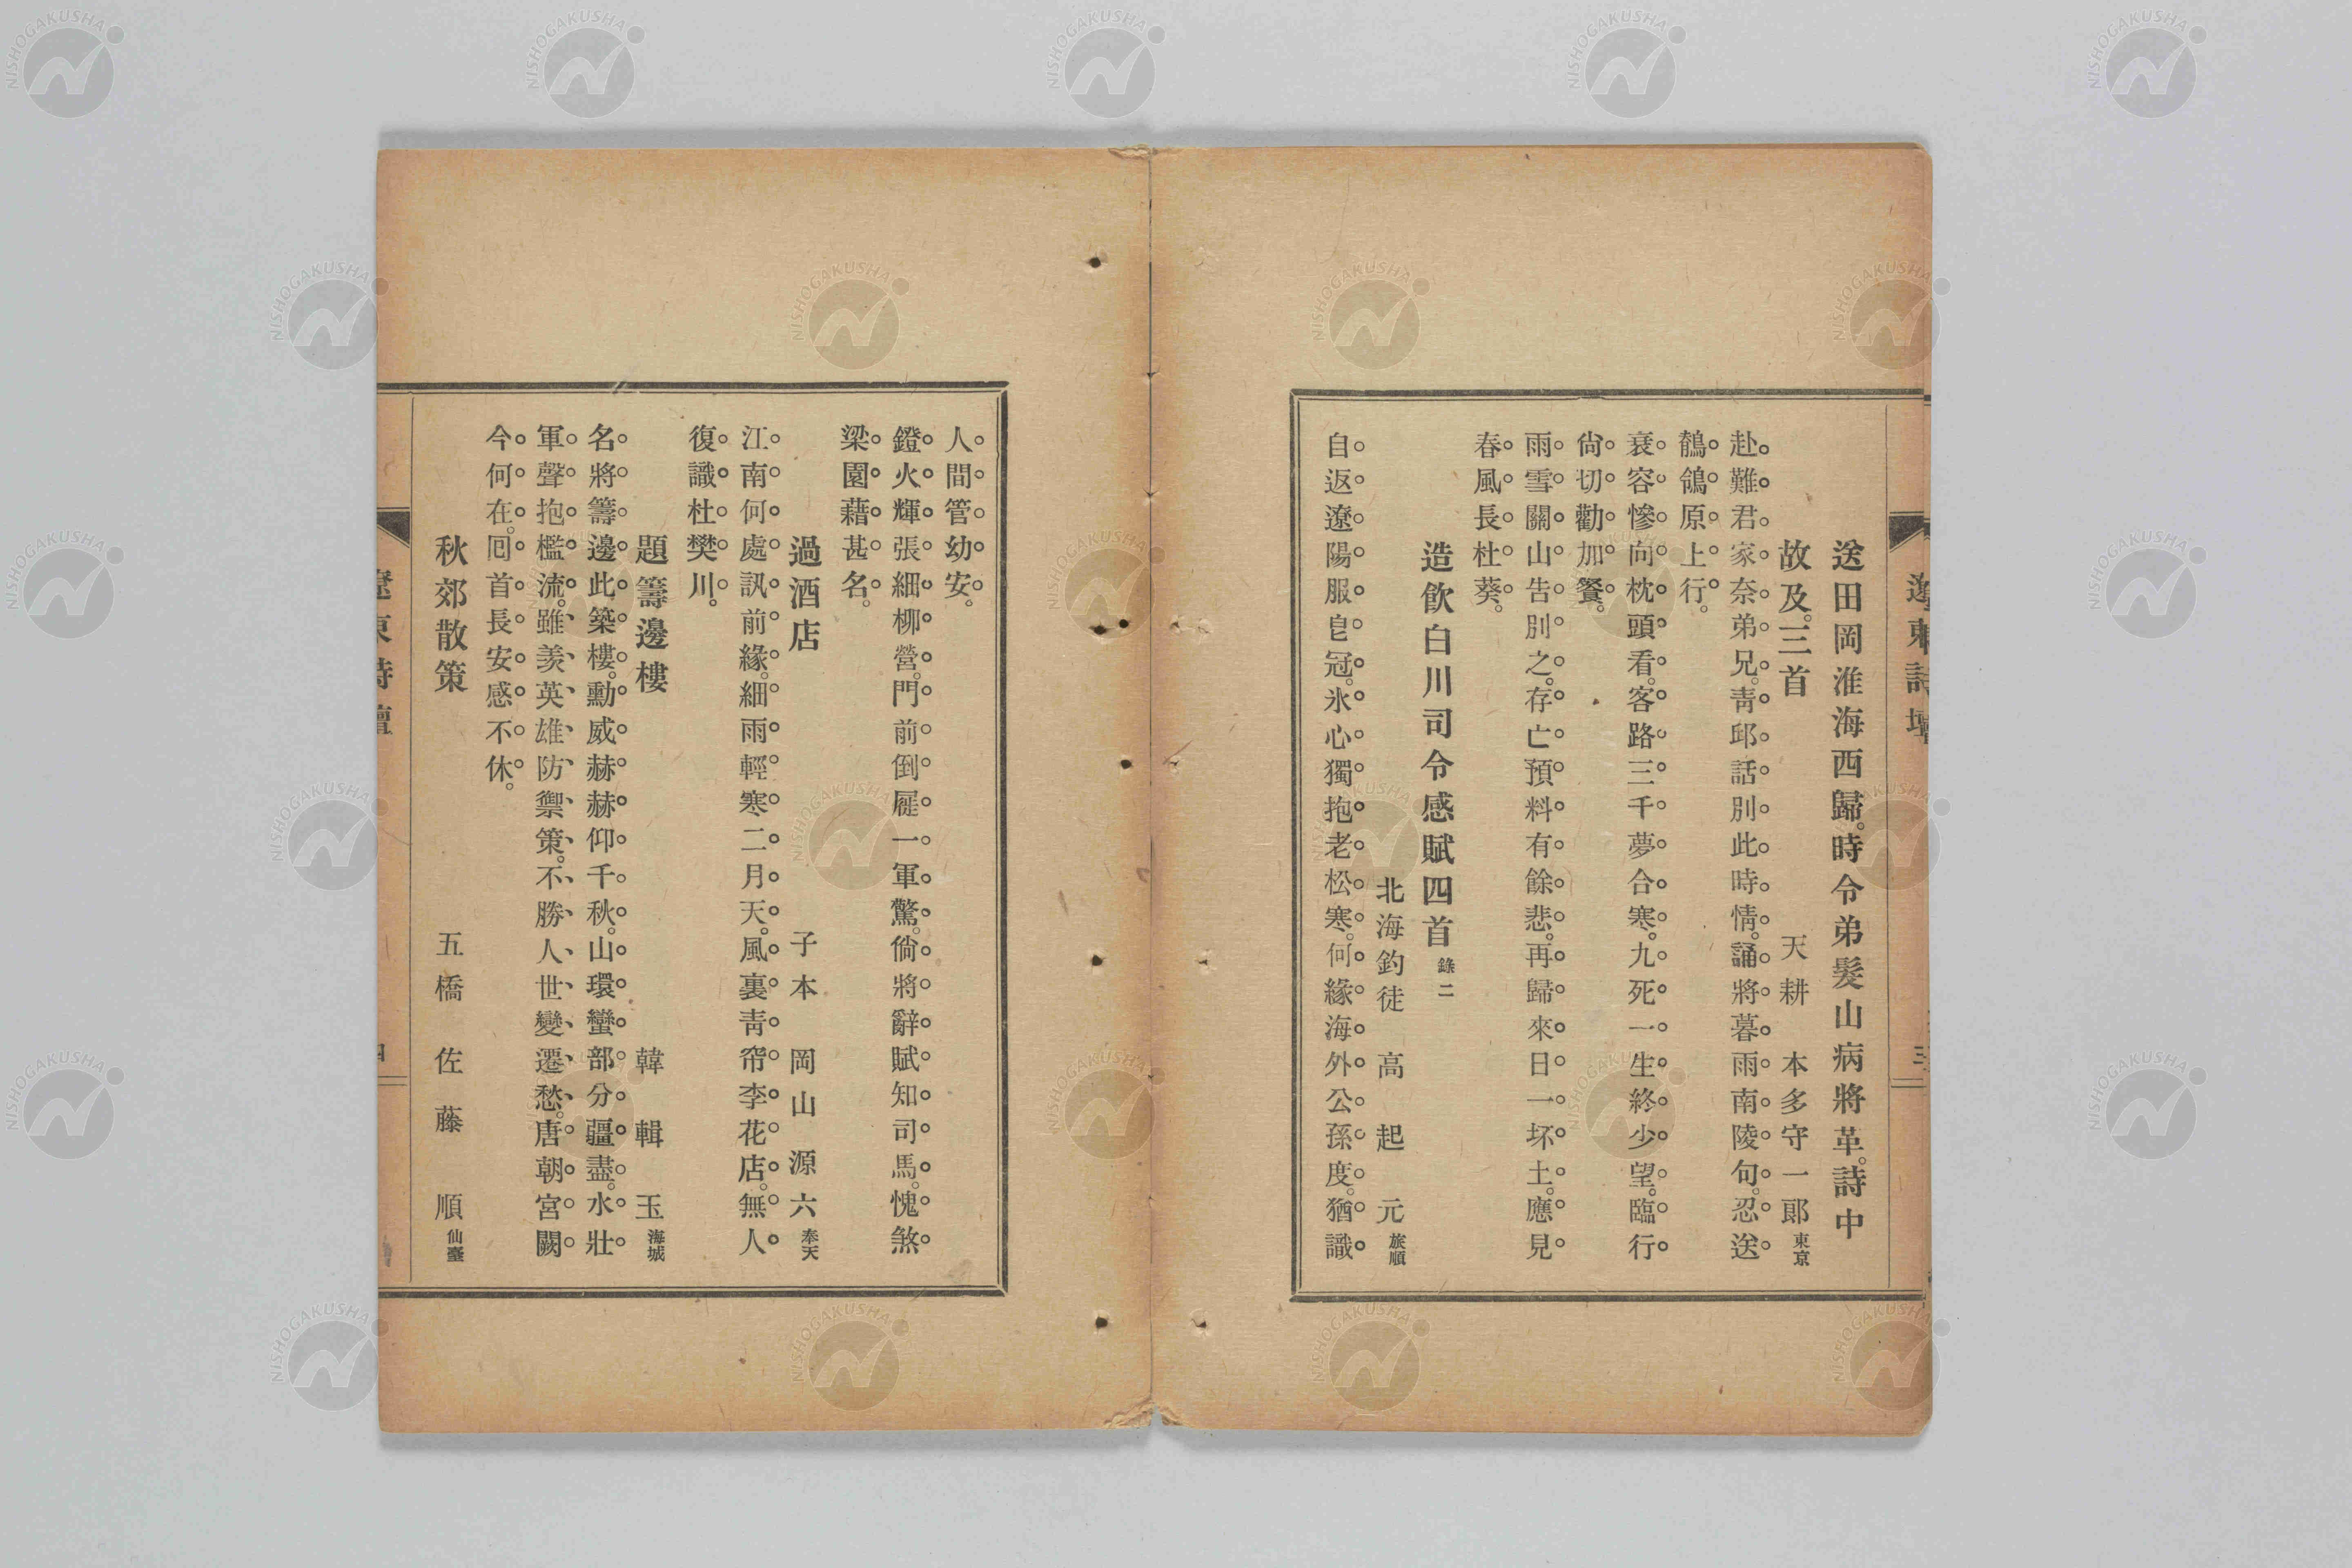 遼東詩壇
三
送田岡淮海西歸。時令弟髮山病將革。詩中
故及。三首　天耕　本多守一郎 東京
赴難君家奈弟兄。靑邱話別此時情。誦將暮雨南陵句。忍送
鶺鴒原上行。
衰容慘向枕頭看。客路三千夢合寒。九死一生終少望。臨行
尙切勸加餐。
雨雪關山告別之。存亡預料有餘悲。再歸來日一坏土。應見
春風長杜葵。
造飮白川司令感賦四首 錄二
北海釣徒　高起元 旅順
自返遼陽服皀冠。氷心獨抱老松寒。何緣海外公孫度。猶識
人間管幼安。
鐙火輝張細柳營。門前倒屣一軍驚。倘將辭賦知司馬。愧煞
梁園藉甚名。
過酒店　子本　岡山源六 奉天
江南何處訊前緣。細雨輕寒二月天。風裏靑帘李花店。無人
復識杜樊川。
題籌邊樓　韓輯玉 海城
名將籌邊此築樓。勳威赫赫仰千秋。山環蠻部分疆盡。水壯
軍聲抱檻流。雖羨英雄防禦策。不勝人世變遷愁。唐朝宮闕
今何在。囘首長安感不休。
秋郊散策　五橋　佐藤順 仙臺
遼東詩壇
四
NISHOGAKUSHA